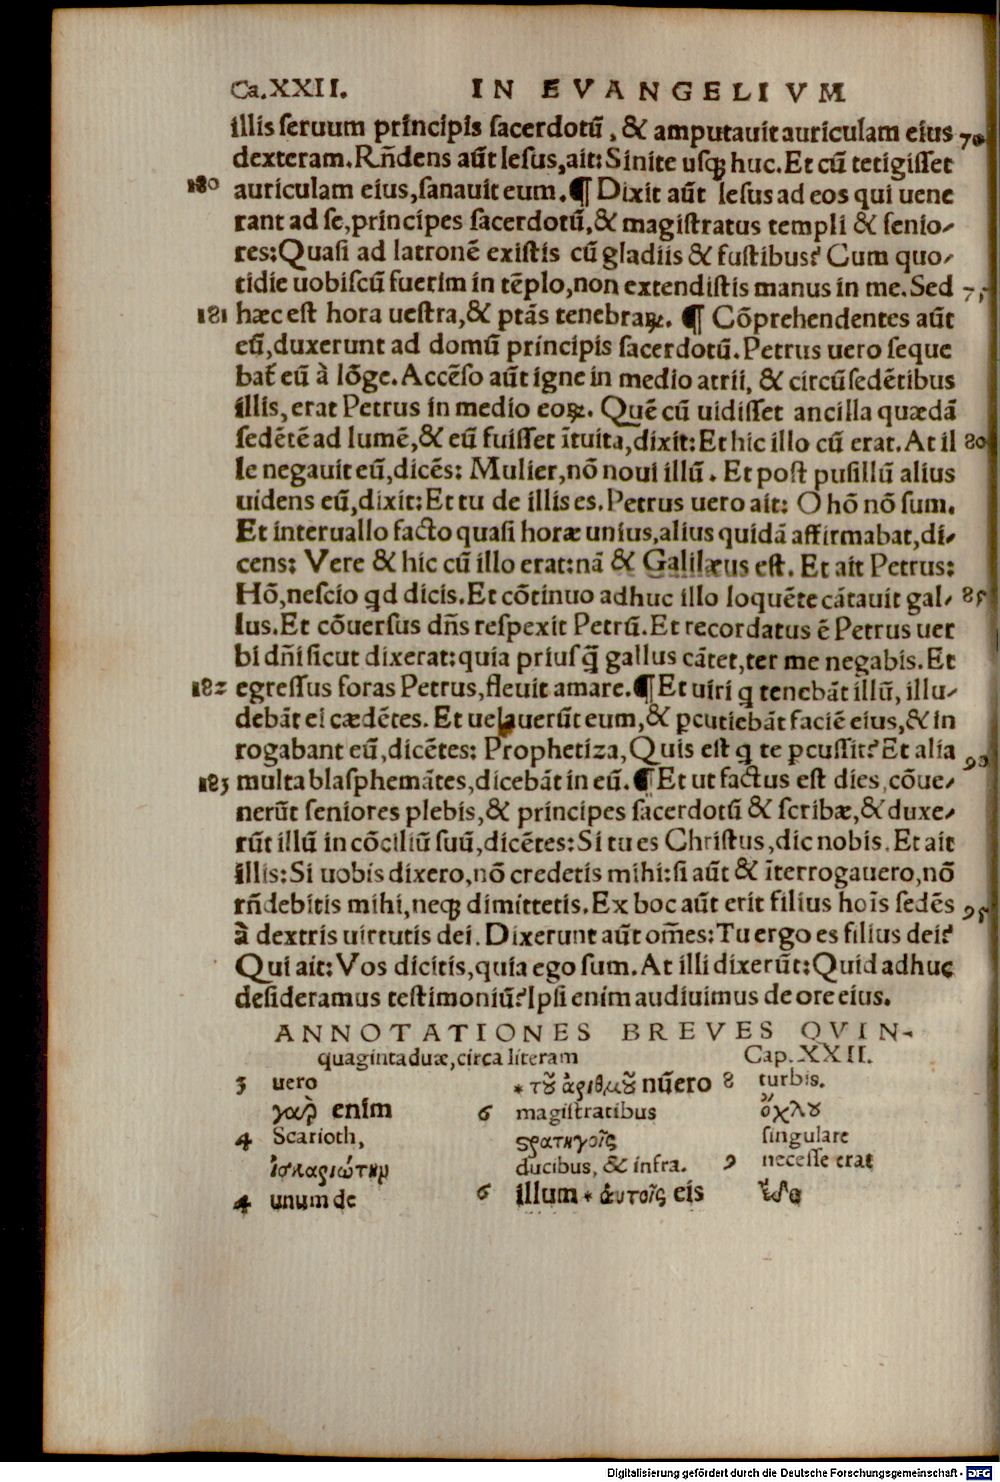 Ca.XXII. IN EVANGELIVM
illis seruum principis sacerdotũ, & amputauit auriculam eius 70
dexteram. Rñdens aũt Iesus, ait: Sinite usq; huc. Et cũ tetigisset
180 auriculam eius, sanauit eum. ¶ Dixit aũt Iesus ad eos qui uene
rant ad se, principes sacerdotũ, & magistratus templi & senio-
res: Quasi ad latronẽ existis cũ gladiis & fustibus? Cum quo-
tidie uobiscũ fuerim in tẽplo, non extendistis manus in me. Sed 75
181 hæc est hora uestra, & ptãs tenebraꝝ. ¶ Cõprehendentes aũt
eũ, duxerunt ad domũ principis sacerdotũ. Petrus uero seque
bat̃ eũ à lõge. Accẽso aũt igne in medio atrii, & circũsedẽtibus
illis, erat Petrus in medio eoꝝ. Quẽ cũ uidisset ancilla quædã
sedẽtẽ ad lumẽ, & eũ fuisset ĩtuita, dixit: Et hic illo cũ erat. At il 80
le negauit eũ, dicẽs: Mulier, nõ noui illũ. Et post pusillũ alius
uidens eũ, dixit: Et tu de illis es. Petrus uero ait: O hõ nõ sum.
Et interuallo facto quasi horæ unius, alius quidã affirmabat, di-
cens: Vere & hic cũ illo erat: nã & Galilæus est. Et ait Petrus:
Hõ, nescio qd dicis. Et cõtinuo adhuc illo loquẽte cãtauit gal- 85
lus. Et cõuersus dñs respexit Petrũ. Et recordatus ẽ Petrus uer
bi dñi sicut dixerat: quia priusq̃ gallus cãtet, ter me negabis. Et
182 egressus foras Petrus, fleuit amare. ¶ Et uiri q tenebãt illũ, illu-
debãt ei cædẽtes. Et uelauerũt eum, & ꝑcutiebãt faciẽ eius, & in
rogabant eũ, dicẽtes: Prophetiza, Quis est q te ꝑcussit? Et alia 90
183 multa blasphemãtes, dicebãt in eũ. ¶ Et ut factus est dies, cõue-
nerũt seniores plebis, & principes sacerdotũ & scribæ, & duxe-
rũt illũ in cõciliũ suũ, dicẽtes: Si tu es Christus, dic nobis. Et ait
illis: Si uobis dixero, nõ credetis mihi: si aũt & ĩterrogauero, nõ
rñdebitis mihi, neq; dimittetis. Ex hoc aũt erit filius hoĩs sedẽs 95
à dextris uirtutis dei. Dixerunt aũt om̃es: Tu ergo es filius dei?
Qui ait: Vos dicitis, quia ego sum. At illi dixerũt: Quid adhuc
desideramus testimoniũ? Ipsi enim audiuimus de ore eius.
ANNOTATIONES BREVES QVIN-
quaginta duæ, circa literam Cap. XXII.
3 uero
γαρ enim
4 Scarioth,
ἰσκαριώτην
4 unum de
* τοῦ ἀριθμοῦ nũero
6 magistratibus
στρατηγοῖς
ducibus, & infra.
6 illum * αυτοῖς eis
8 turbis.
ὄχλου
singulare
9 necesse erat
ἔδει
Digitalisierung gefördert durch die Deutsche Forschungsgemeinschaft - DFG